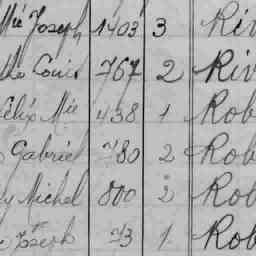 Mie Joseph 1403 3 Riv
Louis 767 2 Riv
Félix Mie 438 1 Rob
Gabriel 780 2 Rob
Michel 800 2 Rob
Joseph 73 1 Rob